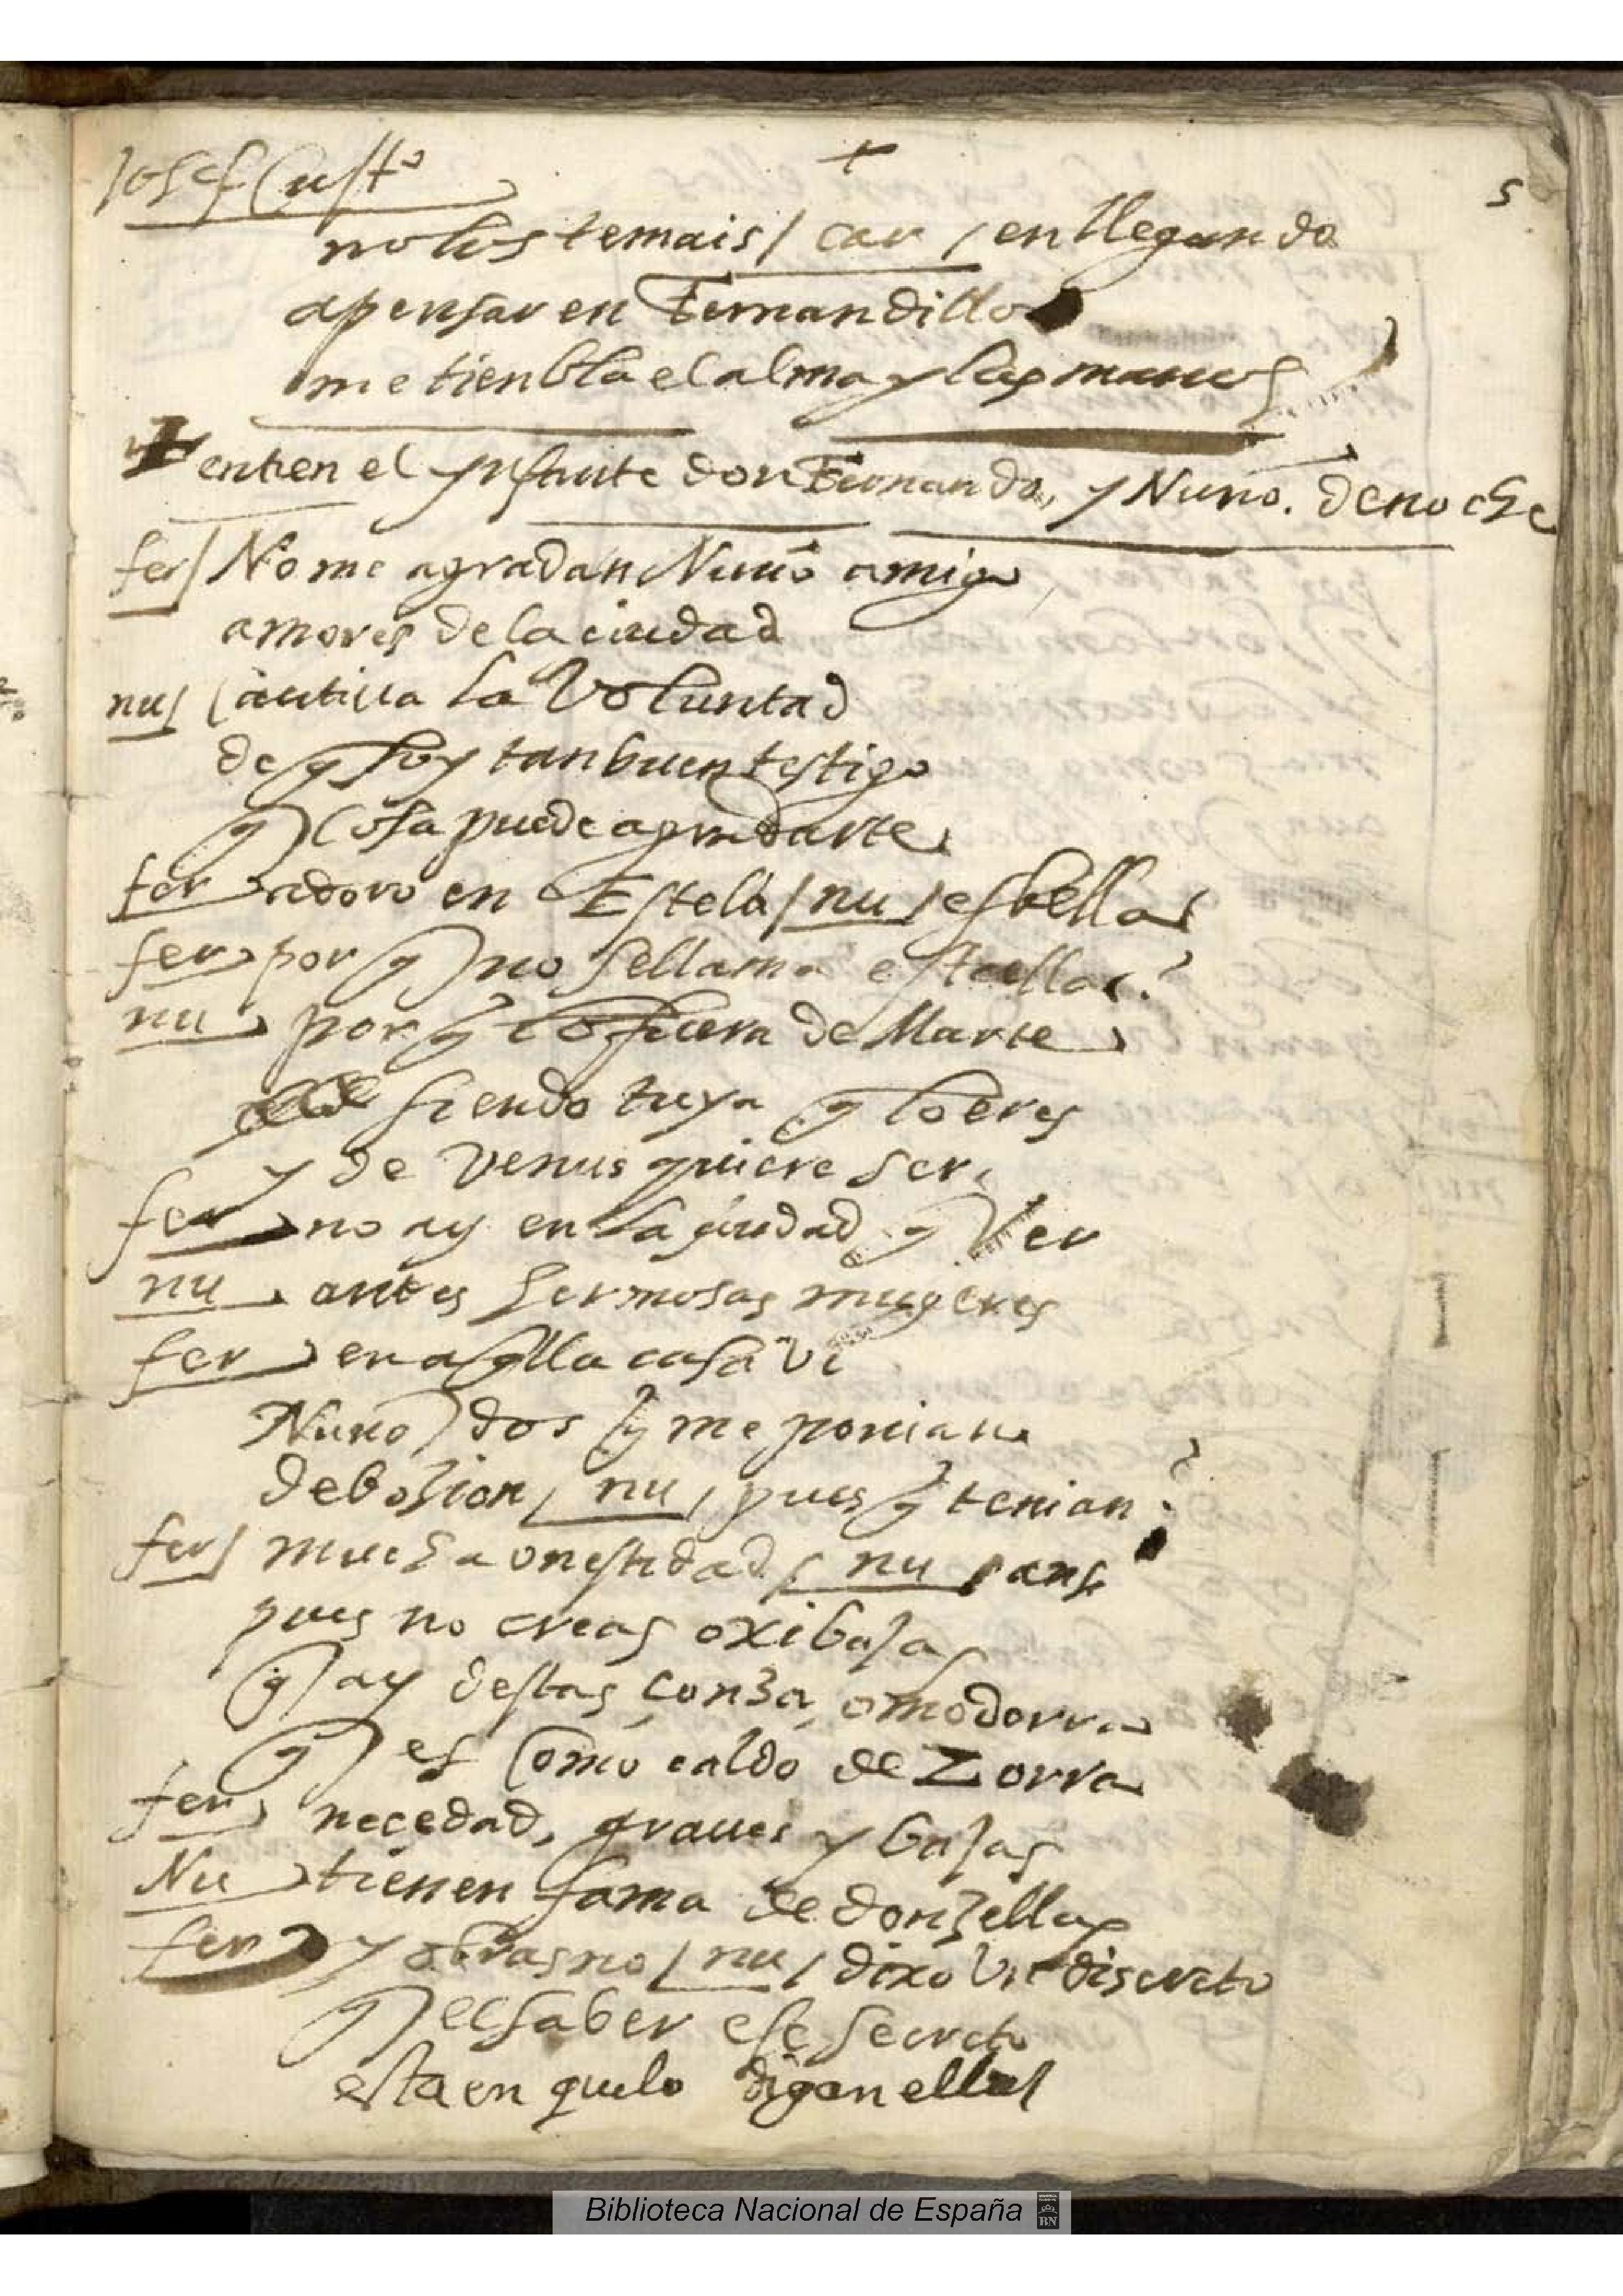 +
5
no los temais / car / en llegando
a pensar en Fernandillo
me tienbla el alma y las manos
entren el ynfante don Fernando, y Nuño. de noche
fer / No me agradan Nuño amigo
amores de la ciudad
nu / cautiva la Voluntad
de q soy tan buen testigo
q cosa puede agradarte
fer adoro en Estela / nu / es bella
fer por q no se llama estrella?
nu por q lo fuera de Marte
siendo tuya q lo eres
y de Venus quiere ser
fer no ay en la ciudad q Ver
nu antes hermosas mugeres
fer en aqlla casa Vi
Nuño dos q me ponian
debosion / nu / pues q tenian?
fer / mucha onestidad / nu / ansi
pues no creas
q ay destas modorra
q es como caldo de Zorra
fer necedad, graues y bajas
Nu tienen fama de donzellas
fer y obras no / nu / dixo Vn discreto
q el saber ese secreto
esta en quelo digan ellas
Biblioteca Nacional de España
BN